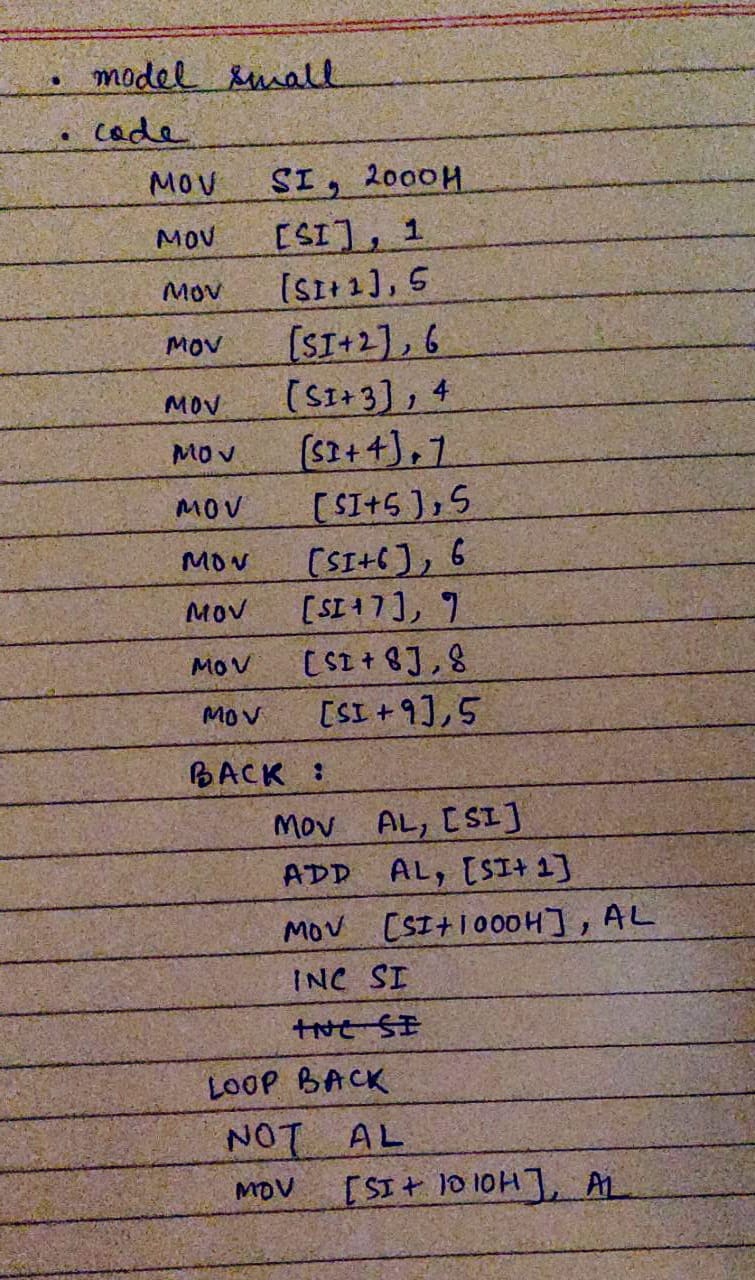 . model small
. code
MOV SI, 2000H
MOV [SI], 1
MOV [SI+1], 5
MOV [SI+2], 6
MOV [SI+3], 4
MOV [SI+4], 7
MOV [SI+5], 5
MOV [SI+6], 6
MOV [SI+7], 9
MOV [SI+8], 8
MOV [SI+9], 5
BACK :
MOV AL, [SI]
ADD AL, [SI+1]
MOV [SI+1000H], AL
INC SI
INC SI
LOOP BACK
NOT AL
MOV [SI+1010H], AL